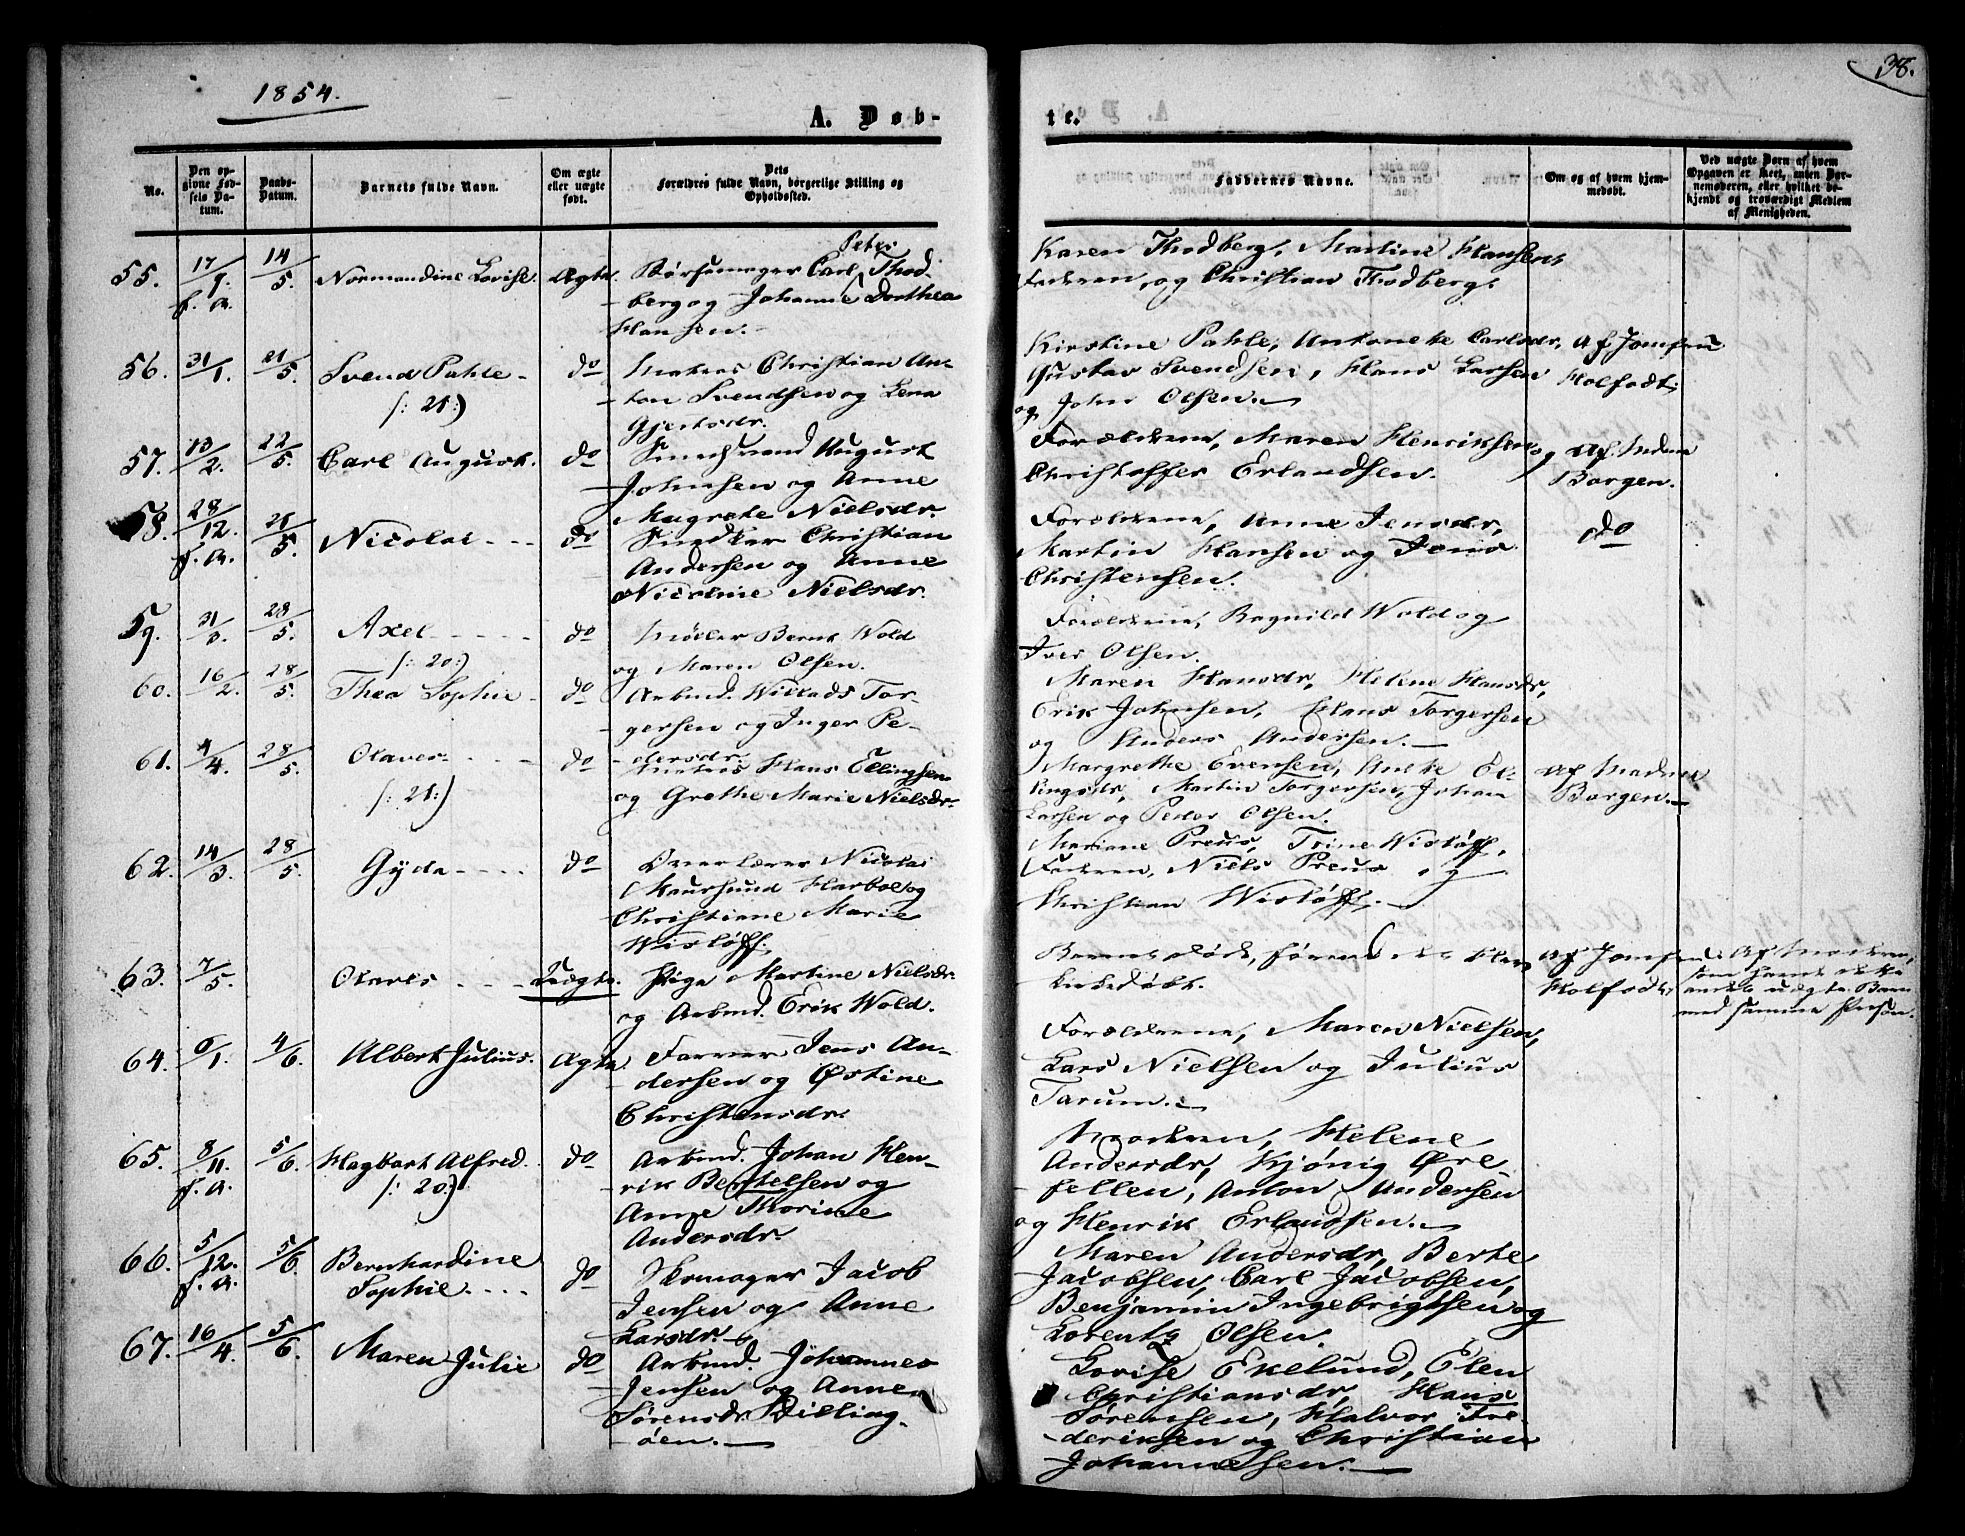 1854.
38.
A. Døb-
te.
No.
Den op-
givne Fød-
sels Da-
tum.
Daabs-
Datum.
Barnets fulde Navn.
Om ægte
eller uægte
født.
Dets
Forældres fulde Navn, borgerlige Stilling og
Opholdssted.
Faddernes Navne.
Om og af hvem hjem-
medøbt.
Ved uægte Børn af hvem
Opgaven er skeet, enten Bar-
nemoderen, eller hvilket be-
kjendt og troværdigt Medlem
af Menigheden.
55. 17/1. f. a. 14/5. Normandine Lovise. Ægte.
Børsemager Carl Peter Thod-
berg og Johanne Dorthea
Hansen.
Karen Thodberg, Martine Hansen,
Faderen, og Christian Thodberg.
56. 31/1. 21/5. Svend Pahle -
(: 21:)
do
Matros Christian An-
ton Svendsen og Lena
Gjertsdr.
Kirstine Pahle, Antonete Carlsdr,
Gustav Svendsen, Hans Larsen
og John Olsen.
Af Jomfru
Holfodt.
57. 13/2. 22/5. Carl August. do
August
Johnsen og Anne
Magrete Nielsdr.
Forældrene, Maren Henriksen og
Christoffer Erlandsen.
Af Madme
Borgen.
58. 28/12. f. a. 21/5. Nicolai - - - do
Snedker Christian
Andersen og Anne
Nicoline Nielsdr.
Forældrene, Anne Jensdr,
Martin Hansen og Jens
Christensen.
do
59. 31/3. 28/5. Axel - - - -
(: 20:)
do
Møller Bernt Wold
og Maren Olsen.
Forældrene, Ragnild Wold og
Iver Olsen.
60. 16/2. 28/5. Thea Sophie - do
Arbmd. Willads Tor-
gersen og Inger Pe-
dersdr.
Maren Hansdr, Helene Hansdr,
Erik Johnsen, Hans Torgersen
og Anders Andersen.
61. 4/4. 28/5. Olaves - - - -
(: 21:)
do
Matros Hans Ellingsen
og Grethe Marie Nielsdr.
Margrethe Evensen, Anne El-
lingsdr, Martin Torgersen, Johan
Larsen og Peder Olsen.
Af Madme
Borgen.
62. 14/3. 28/5. Gyda - - - - do
Overlærer Nicolai
Maursund Harboe og
Christiane Marie
Wisløff.
Mariane Preus, Trine Wisløff,
Faderen, Niels Preus og
Christian Wisløff.
63. 7/5. Olaves - - - Uægte.
Pige Martine Nielsdr.
og Arbmd. Erik Wold.
Barnet døde, førend det blev
kirkedøbt.
Af Jomfru
Holfodt.
Af Moderen,
som havde
andet uægte Barn
med samme Person.
64. 6/1. 4/6. Albert Julius. Ægte.
Farver Jens An-
dersen og Østine
Christensdr.
Forældrene, Maren Nielsen,
Lars Nielsen og Julius
Tarum.
65. 8/11. f. a. 5/6. Hagbart Alfred.
(: 20:)
do
Arbmd. Johan Hen-
rik Bertelsen og
Anne Thorine
Andersdr.
Moderen, Helene
Andersdr, Kjønig Øre-
fellen, Anton Andersen
og Henrik Erlandsen.
66. 5/12. f. a. 5/6. Bernhardine
Sophie. . . .
do
Skomager Jacob
Jensen og Anne
Larsdr.
Maren Andersdr, Berte
Jacobsen, Carl Jacobsen,
Benjamin Ingebrigtsen og
Lorentz Olsen.
67. 16/4. 5/6. Maren Julie do
Arbmd. Johannes
Jensen og Anne
Sørensdr. Dilling-
øen.
Lovise Ekelund, Elen
Christiansdr, Hans
Sørensen, Halvor Fre-
deriksen og Christian
Johannesen.